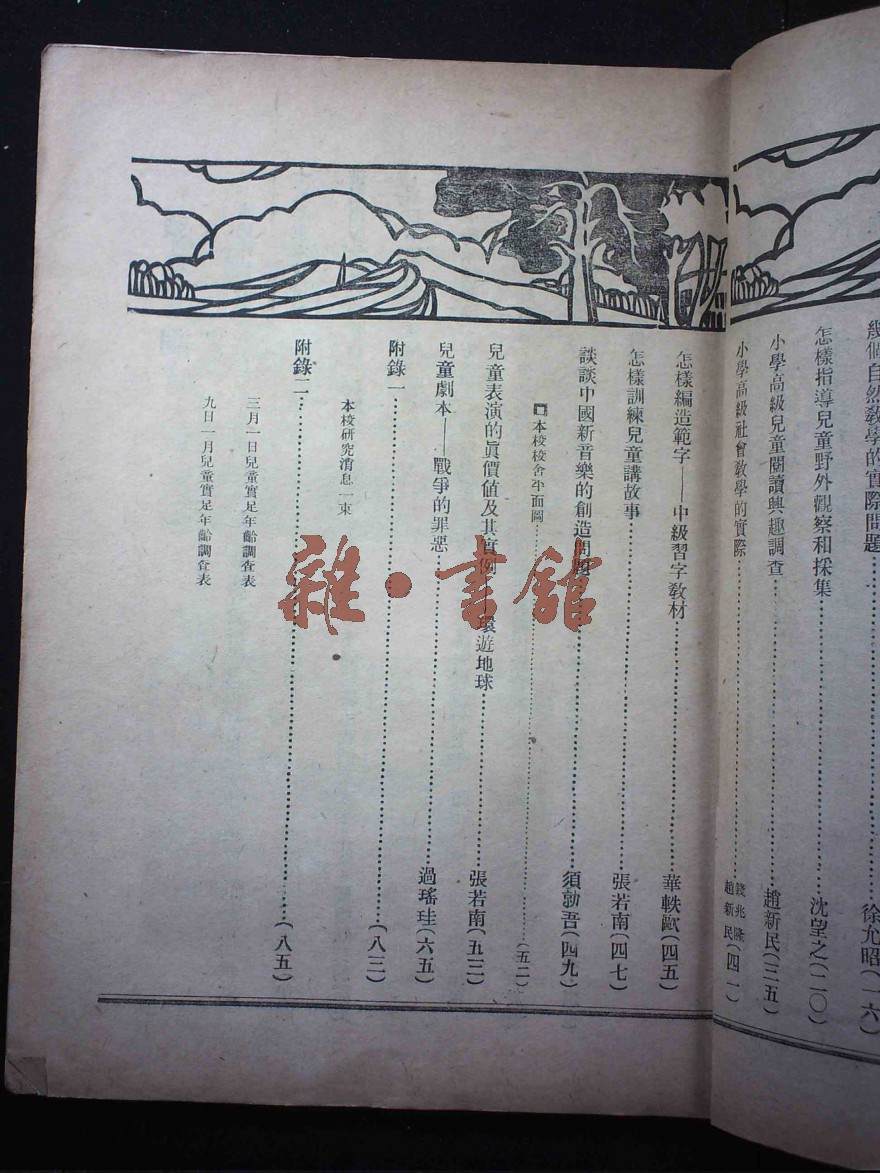 幾個自然教學的實際問題……徐允昭(一六)
怎樣指導兒童野外觀察和採集……沈望之(二〇)
小學高級兒童閱讀興趣調查……趙新民(三五)
小學高級社會教學的實際……錢兆隆 趙新民(四一)
怎樣編造範字——中級習字教材……華軼歐(四五)
怎樣訓練兒童講故事……張若南(四七)
談談中國新音樂的創造問題……須勍吾(四九)
本校校舍平面圖……(五二)
兒童表演的眞價値及其實例——環遊地球……張若南(五三)
兒童劇本——戰爭的罪惡……過瑤珪(六五)
附錄一……(八三)
本校研究消息一束
附錄二……(八五)
三月一日兒童實足年齡調查表
九日一月兒童實足年齡調查表
雜·書館